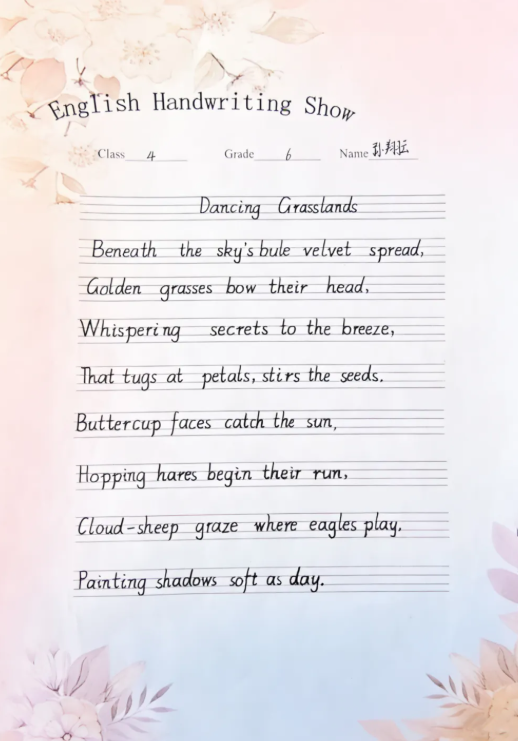 English Handwriting Show
Class 4 Grade 6 Name 孙翔
Dancing Grasslands
Beneath the sky's bule velvet spread,
Golden grasses bow their head,
Whispering secrets to the breeze,
That tugs at petals, stirs the seeds.
Buttercup faces catch the sun,
Hopping hares begin their run,
Cloud-sheep graze where eagles play.
Painting shadows soft as day.